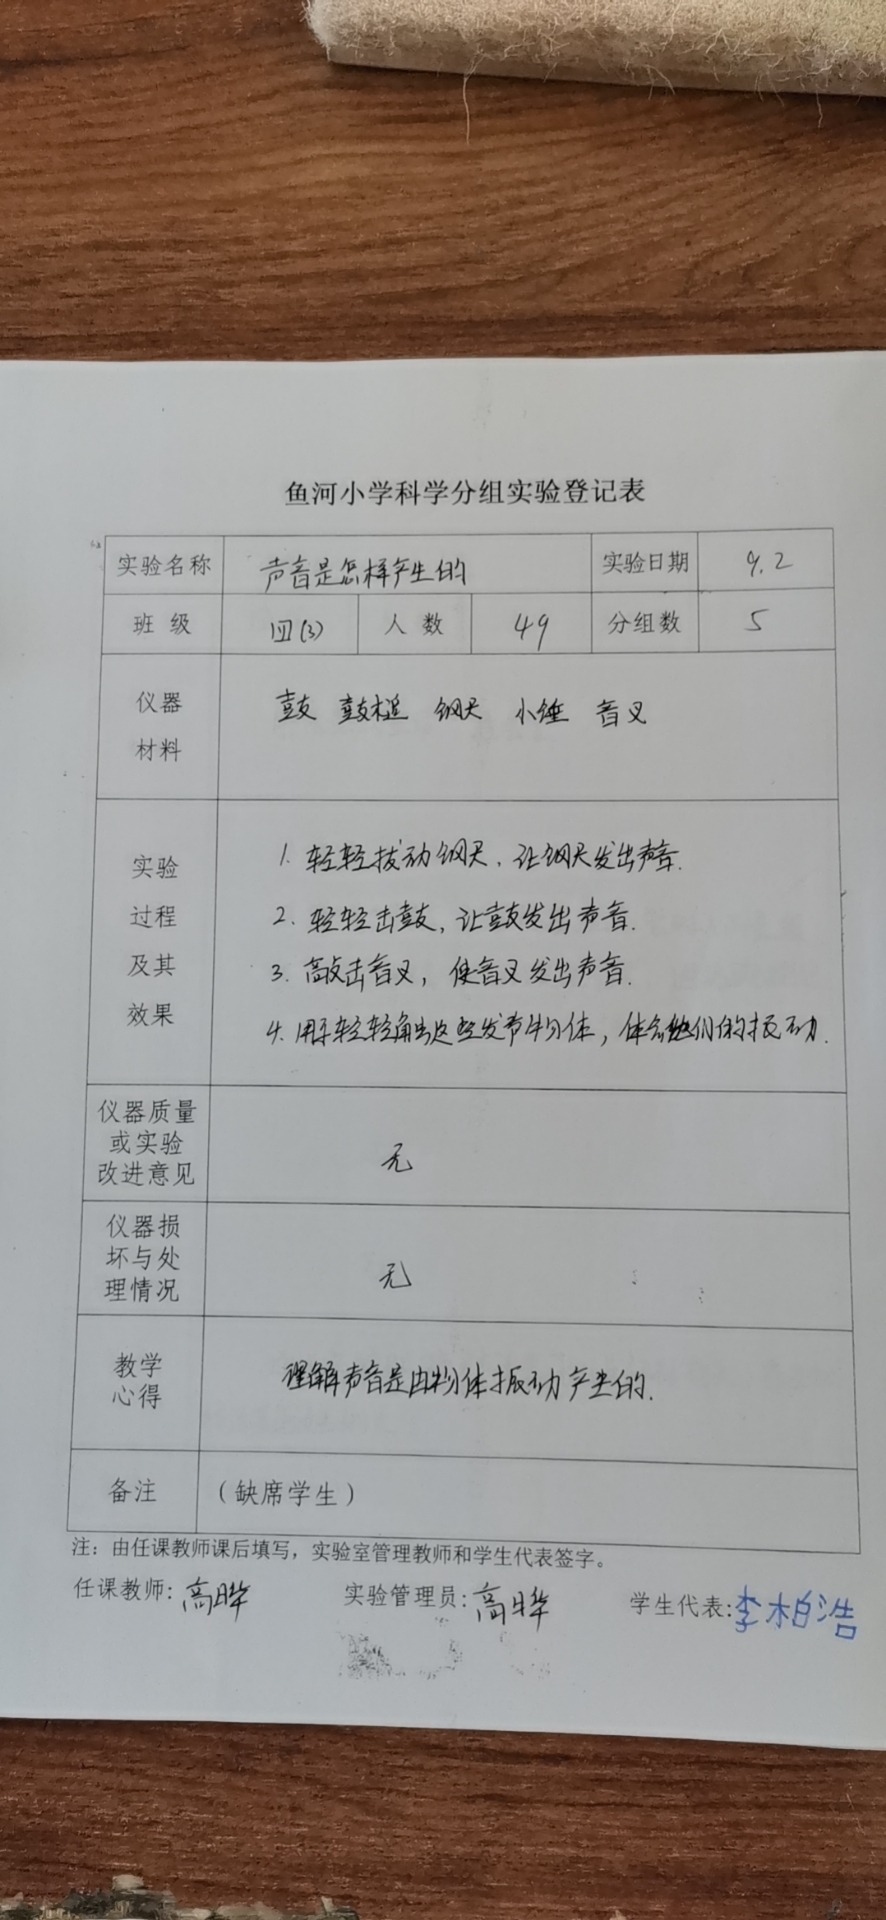 鱼河小学科学分组实验登记表
实验名称 声音是怎样产生的 实验日期 9.2
班 级 四(3) 人 数 49 分组数 5
仪器
材料
鼓 鼓槌 钢尺 小锤 音叉
实验
过程
及其
效果
1. 轻轻拨动钢尺,让钢尺发出声音.
2. 轻轻击鼓,让鼓发出声音.
3. 敲击音叉,使音叉发出声音.
4. 用手轻轻触这些发声物体,体会他们的振动.
仪器质量
或实验
改进意见
无
仪器损
坏与处
理情况
无
教学
心得
理解声音是由物体振动产生的.
备注 (缺席学生)
注:由任课教师课后填写,实验室管理教师和学生代表签字。
任课教师:高晔 实验管理员:高晔 学生代表:李柏浩